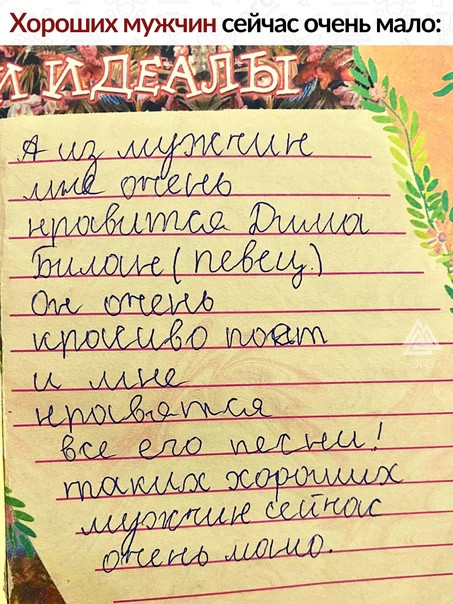 Хороших мужчин сейчас очень мало:
И ИДЕАЛЫ
А из мужчин
мне очень
нравится Дима
Билан (певец.)
Он очень
красиво поет
и мне
нравятся
все его песни!
таких хороших
мужчин сейчас
очень мало.